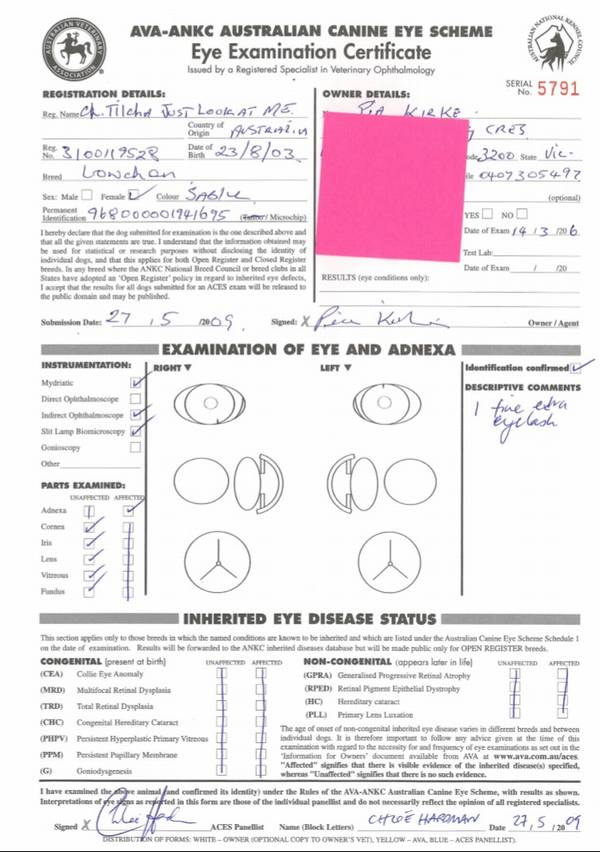 AVA-ANKC AUSTRALIAN CANINE EYE SCHEME
Eye Examination Certificate
Issued by a Registered Specialist in Veterinary Ophthalmology
AUSTRALIAN VETERINARY ASSOCIATION
AUSTRALIAN NATIONAL KENNEL COUNCIL
SERIAL No. 5791
REGISTRATION DETAILS:
Reg. Name Ch. Tilcha JUST LOOK AT ME
Country of Origin AUSTRALIA
Reg. No. 3100119528 Date of Birth 23/8/03
Breed Lowchen
Sex: Male Female Colour SABLE
Permanent Identification 968000001941695 (Tattoo/Microchip)
I hereby declare that the dog submitted for examination is the one described above and
that all the given statements are true. I understand that the information obtained may
be used for statistical or research purposes without disclosing the identity of
individual dogs, and that this applies for both Open Register and Closed Register
breeds. In any breed where the ANKC National Breed Council or breed clubs in all
States have adopted an 'Open Register' policy in regard to inherited eye defects,
I accept that the results for all dogs submitted for an ACES exam will be released to
the public domain and may be published.
OWNER DETAILS:
PIA KIRKE
CRES
3200 State Vic
0407305497
(optional)
YES NO
Date of Exam 14/3/206
Test Lab:
Date of Exam / /20
RESULTS (eye conditions only):
Submission Date: 27/5/2009 Signed: X Owner / Agent
EXAMINATION OF EYE AND ADNEXA
INSTRUMENTATION:
Mydriatic
Direct Ophthalmoscope
Indirect Ophthalmoscope
Slit Lamp Biomicroscopy
Gonioscopy
Other
PARTS EXAMINED:
UNAFFECTED AFFECTED
Adnexa
Cornea
Iris
Lens
Vitreous
Fundus
RIGHT ▼ LEFT ▼
Identification confirmed
DESCRIPTIVE COMMENTS
1 fine extra
eyelash
INHERITED EYE DISEASE STATUS
This section applies only to those breeds in which the named conditions are known to be inherited and which are listed under the Australian Canine Eye Scheme Schedule 1
on the date of examination. Results will be forwarded to the ANKC inherited diseases database but will be made public only for OPEN REGISTER breeds.
CONGENITAL (present at birth) UNAFFECTED AFFECTED
(CEA) Collie Eye Anomaly
(MRD) Multifocal Retinal Dysplasia
(TRD) Total Retinal Dysplasia
(CHC) Congenital Hereditary Cataract
(PHPV) Persistent Hyperplastic Primary Vitreous
(PPM) Persistent Pupillary Membrane
(G) Goniodysgenesis
NON-CONGENITAL (appears later in life) UNAFFECTED AFFECTED
(GPRA) Generalised Progressive Retinal Atrophy
(RPED) Retinal Pigment Epithelial Dystrophy
(HC) Hereditary cataract
(PLL) Primary Lens Luxation
The age of onset of non-congenital inherited eye disease varies in different breeds and between
individual dogs. It is therefore important to follow any advice given at the time of this
examination with regard to the necessity for and frequency of eye examinations as set out in the
'Information for Owners' document available from AVA at www.ava.com.au/aces.
"Affected" signifies that there is visible evidence of the inherited disease(s) specified,
whereas "Unaffected" signifies that there is no such evidence.
I have examined the above animal (and confirmed its identity) under the Rules of the AVA-ANKC Australian Canine Eye Scheme, with results as shown.
Interpretations of eye signs as reported in this form are those of the individual panellist and do not necessarily reflect the opinion of all registered specialists.
Signed X ACES Panellist Name (Block Letters) CHLOE HARDMAN Date 27/5/2009
DISTRIBUTION OF FORMS: WHITE – OWNER (OPTIONAL COPY TO OWNER'S VET), YELLOW – AVA, BLUE – ACES PANELLIST).